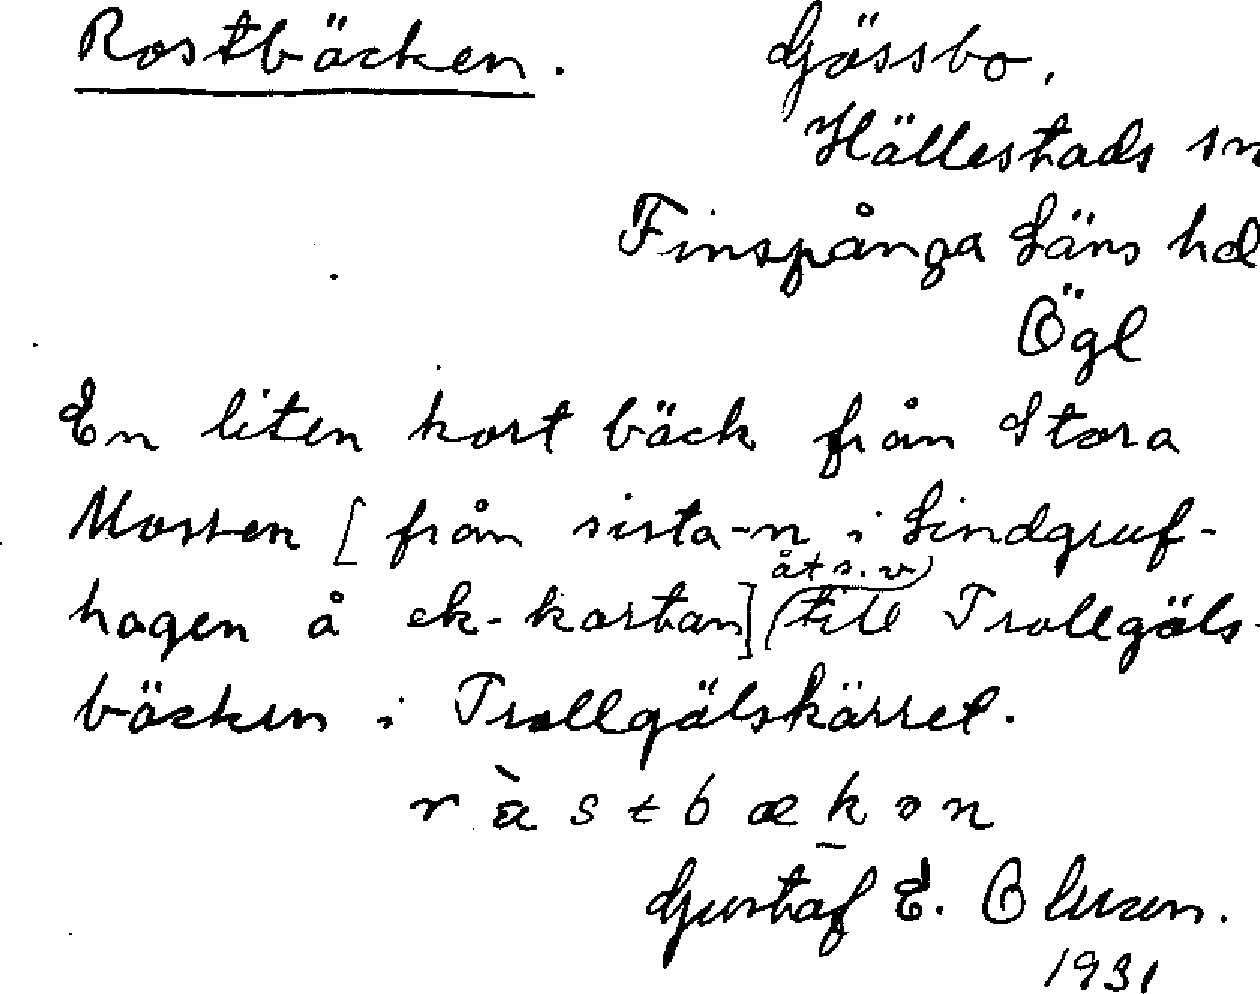 Rostbäcken. Gössbo,
Hällestads sn
Finspånga Läns hd
Ögl
En liten kort bäck från Stora
Mossen [från sista-n i Lindgruf-
hagen å ek-kartan] (till åt s.v) Trollgöls-
bäcken i Trollgölskärret.
r à s t b æ k ə n
Gustaf E. Olsson.
1931